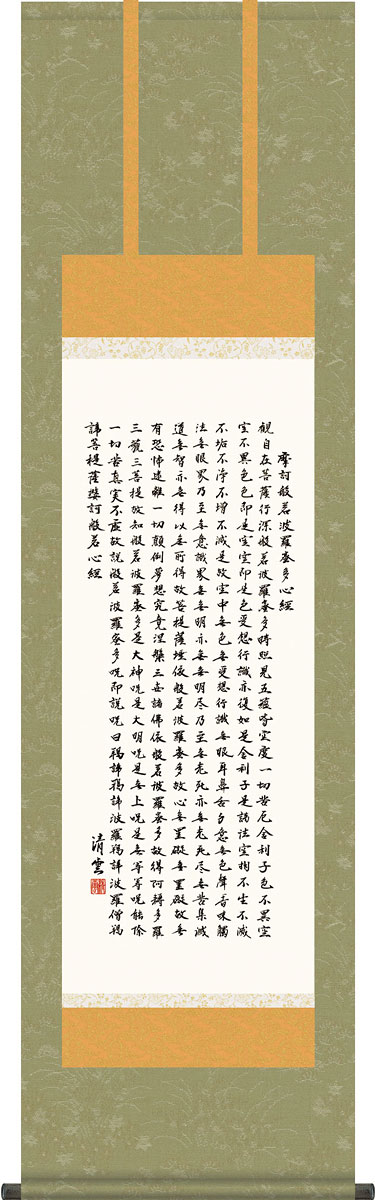 摩訶般若波羅蜜多心經
観自在菩薩行深般若波羅蜜多時照見五蘊皆空度一切苦厄舎利子色不異空
空不異色色即是空空即是色受想行識亦復如是舎利子是諸法空相不生不滅
不垢不浄不増不減是故空中無色無受想行識無眼耳鼻舌身意無色聲香味觸
法無眼界乃至無意識界無無明亦無無明尽乃至無老死亦無老死尽無苦集滅
道無智亦無得以無所得故菩提薩埵依般若波羅蜜多故心無罣礙無罣礙故無
有恐怖遠離一切顛倒夢想究竟涅槃三世諸佛依般若波羅蜜多故得阿耨多羅
三藐三菩提故知般若波羅蜜多是大神呪是大明呪是無上呪是無等等呪能除
一切苦真実不虚故説般若波羅蜜多呪即説呪曰羯諦羯諦波羅羯諦波羅僧羯
諦菩提薩婆訶般若心經
清雲